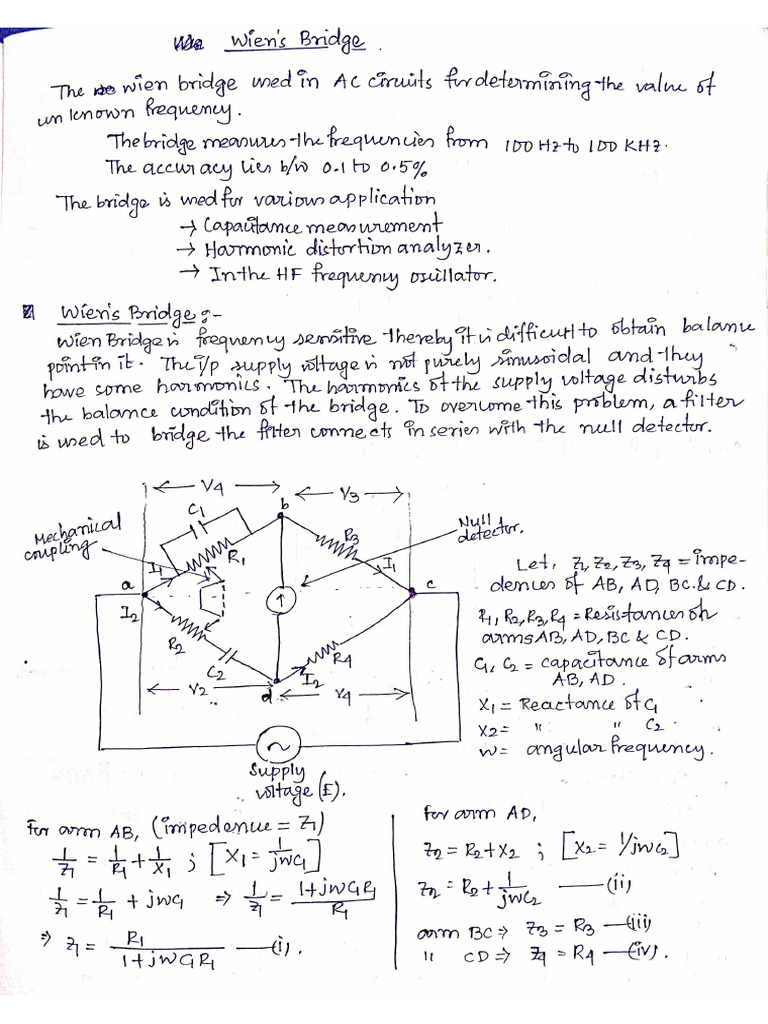 Wien's Bridge.
The wien bridge used in AC circuits for determining the value of
unknown frequency.
The bridge measures the frequencies from 100 Hz to 100 KHz.
The accuracy lies b/w 0.1 to 0.5%
The bridge is used for various application
→ Capacitance measurement
→ Harmonic distortion analyzer.
→ In the HF frequency oscillator.
Wien's Bridge :-
Wien Bridge is frequency sensitive thereby it is difficult to obtain balance
point in it. The i/p supply voltage is not purely sinusoidal and they
have some harmonics. The harmonics of the supply voltage disturbs
the balance condition of the bridge. To overcome this problem, a filter
is used to bridge the filter connects in series with the null detector.
V4
V3
C1
b
Mechanical
coupling
R1
R3
Null
detector.
I1
I1
a
c
I2
R2
C2
R4
I2
d
V2
V4
Supply
voltage (E).
Let, Z1, Z2, Z3, Z4 = impe-
dences of AB, AD, BC & CD.
R1, R2, R3, R4 = Resistances of
arms AB, AD, BC & CD.
C1, C2 = capacitance of arms
AB, AD.
X1 = Reactance of C1
X2 = " " C2.
w = angular frequency.
For arm AB, (impedence = Z1)
1/Z1 = 1/R1 + 1/X1 ; [X1 = 1/jwC1]
1/Z1 = 1/R1 + jwC1 ⇒ 1/Z1 = 1+jwC1R1/R1
⇒ Z1 = R1/1+jwC1R1 —(i).
For arm AD,
Z2 = R2 + X2 ; [X2 = 1/jwC2]
Z2 = R2 + 1/jwC2 —(ii)
arm BC ⇒ Z3 = R3 —(iii)
" CD ⇒ Z4 = R4 —(iv).